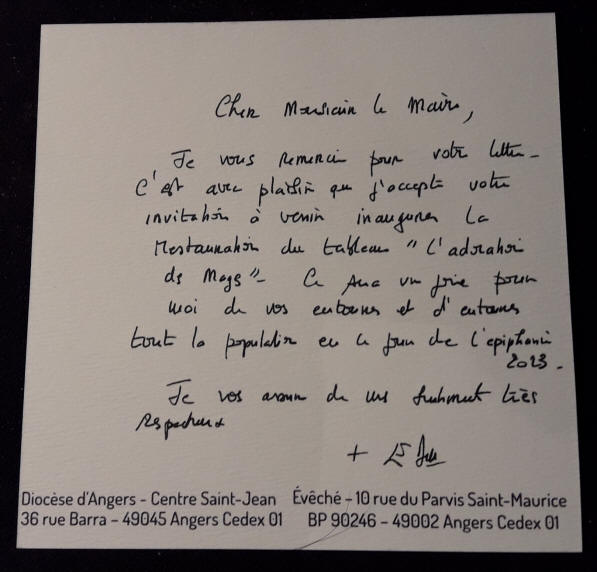 Cher Monsieur le Maire,
Je vous remercie pour votre lettre -
C'est avec plaisir que j'accepte votre
invitation à venir inaugurer la
restauration du tableau "L'adoration
des Mages" - Ce sera une joie pour
moi de vous entourer et d'entourer
toute la population en ce jour de l'épiphanie
2023.
Je vous assure de mes sentiments très
respectueux
+
Diocèse d'Angers - Centre Saint-Jean Évêché - 10 rue du Parvis Saint-Maurice
36 rue Barra - 49045 Angers Cedex 01 BP 90246 - 49002 Angers Cedex 01